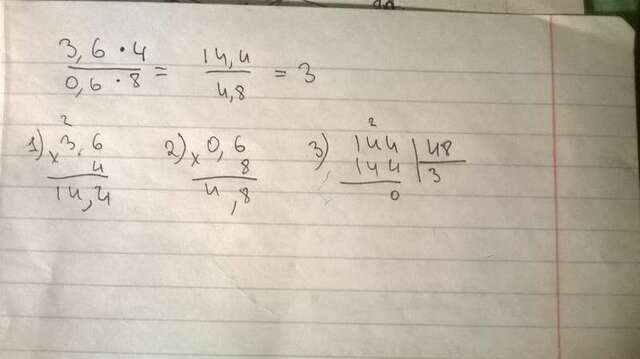 3,6 · 4 / 0,6 · 8 = 14,4 / 4,8 = 3
1) 2 3,6 × 4 14,4
2) 0,6 × 8 4,8
3) 2 144 48 144 3 0